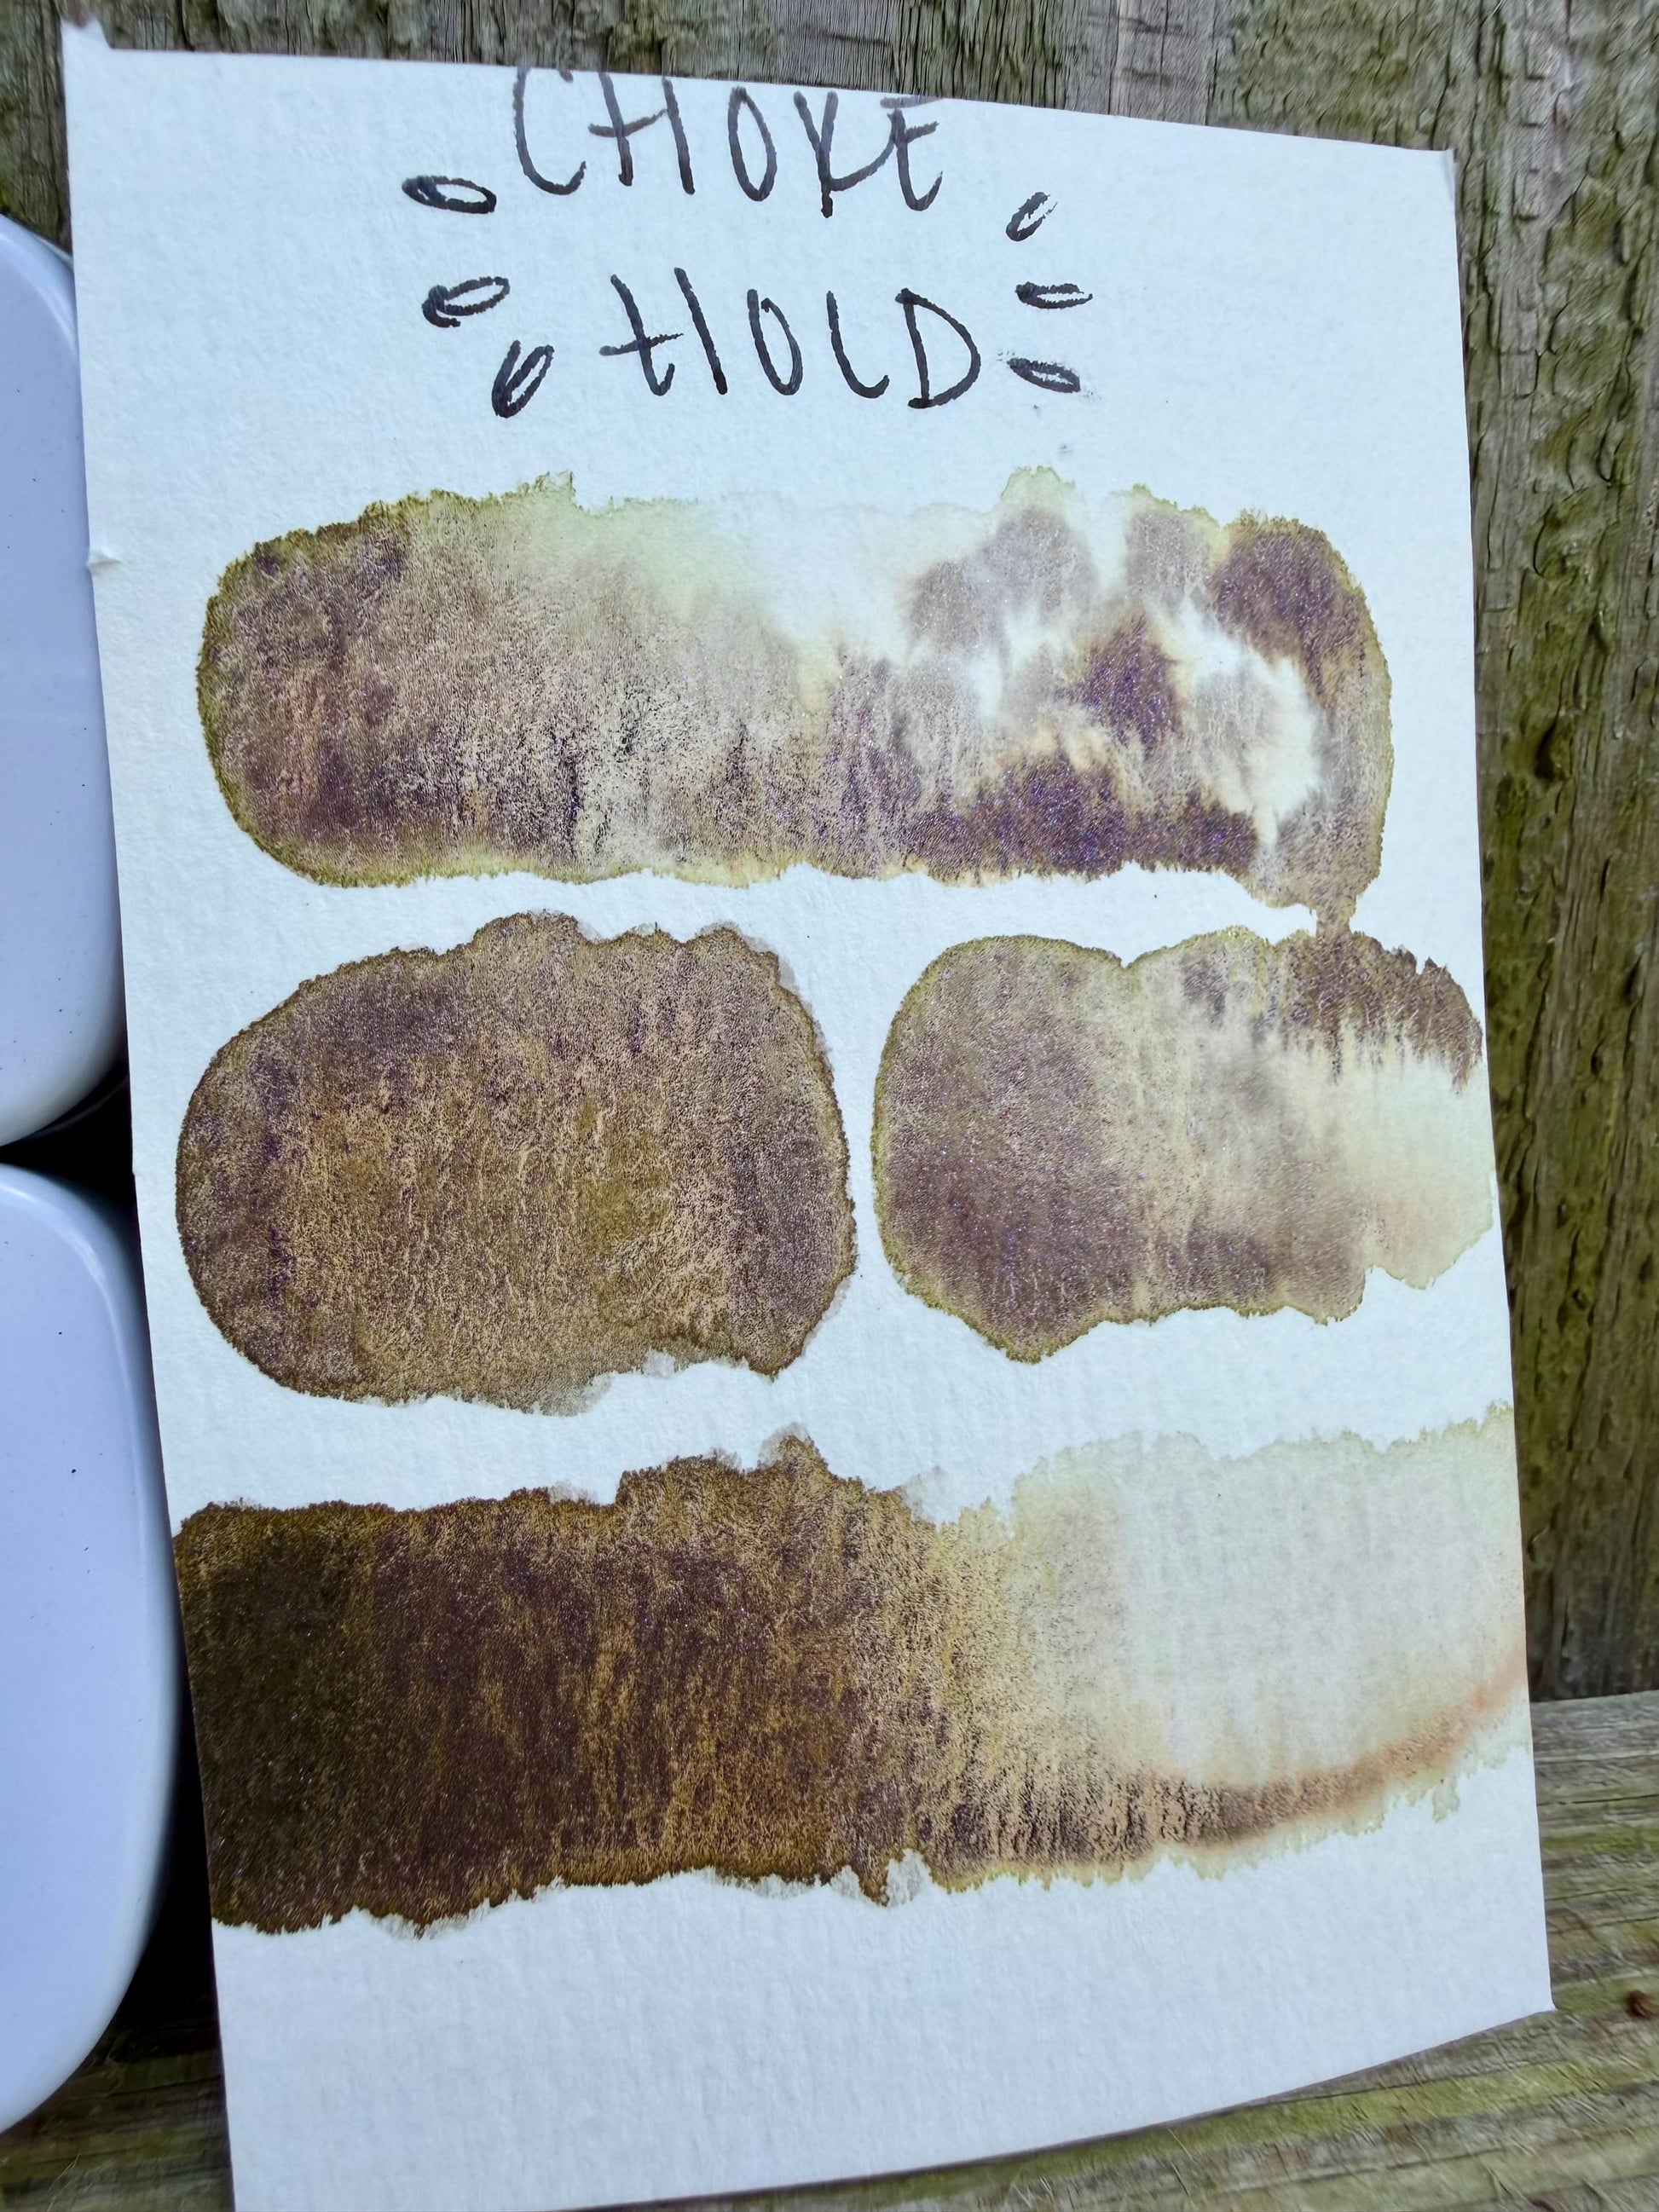 CHOKE
HOLD